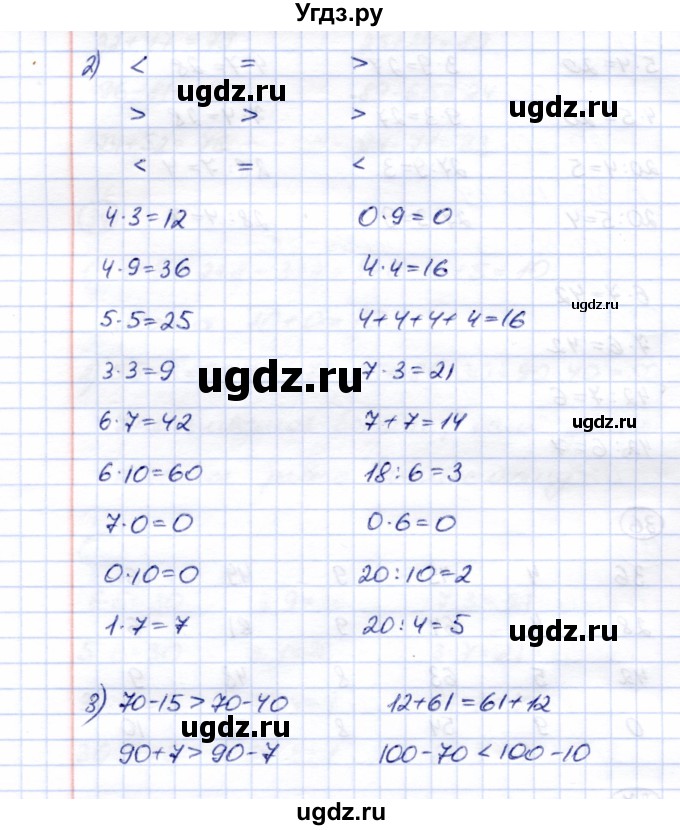 Угдз.ру
2) < = >
ugdz.ru ugdz.ru
> > >
< = <
4·3=12 0·9=0
4·9=36 4·4=16
ugdz.ru
5·5=25 4+4+4+4=16
3·3=9 7·3=21
ugdz.ru
6·7=42 7+7=14
ugdz.ru
6·10=60 18:6=3
7·0=0 0·6=0
0·10=0 20:10=2
1·7=7 20:4=5
ugdz.ru
3) 70-15>70-40 12+61=61+12
ugdz.ru
90+7>90-7 100-70<100-10
ugdz.ru